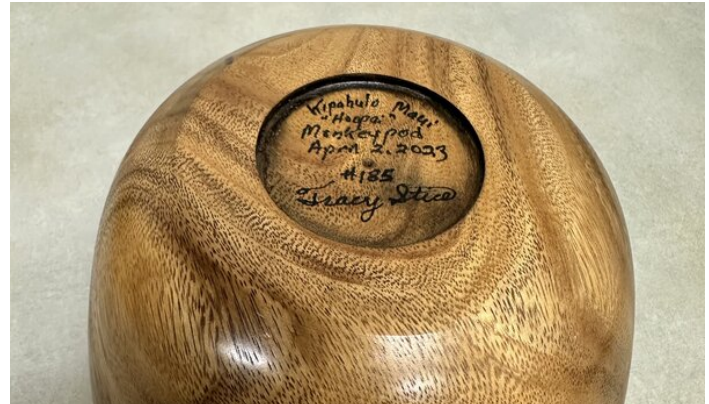 Kipahulu Maui
"Haapai"
Monkeypod
April 2.2023
#185
Tracy Stice